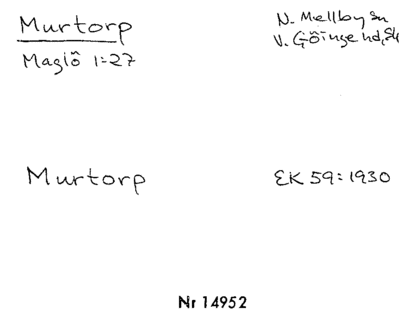 Murtorp
N. Mellby sn
Maglö 1:27
V. Göinge hd, Sk
Murtorp
EK 59:1930
Nr 14952